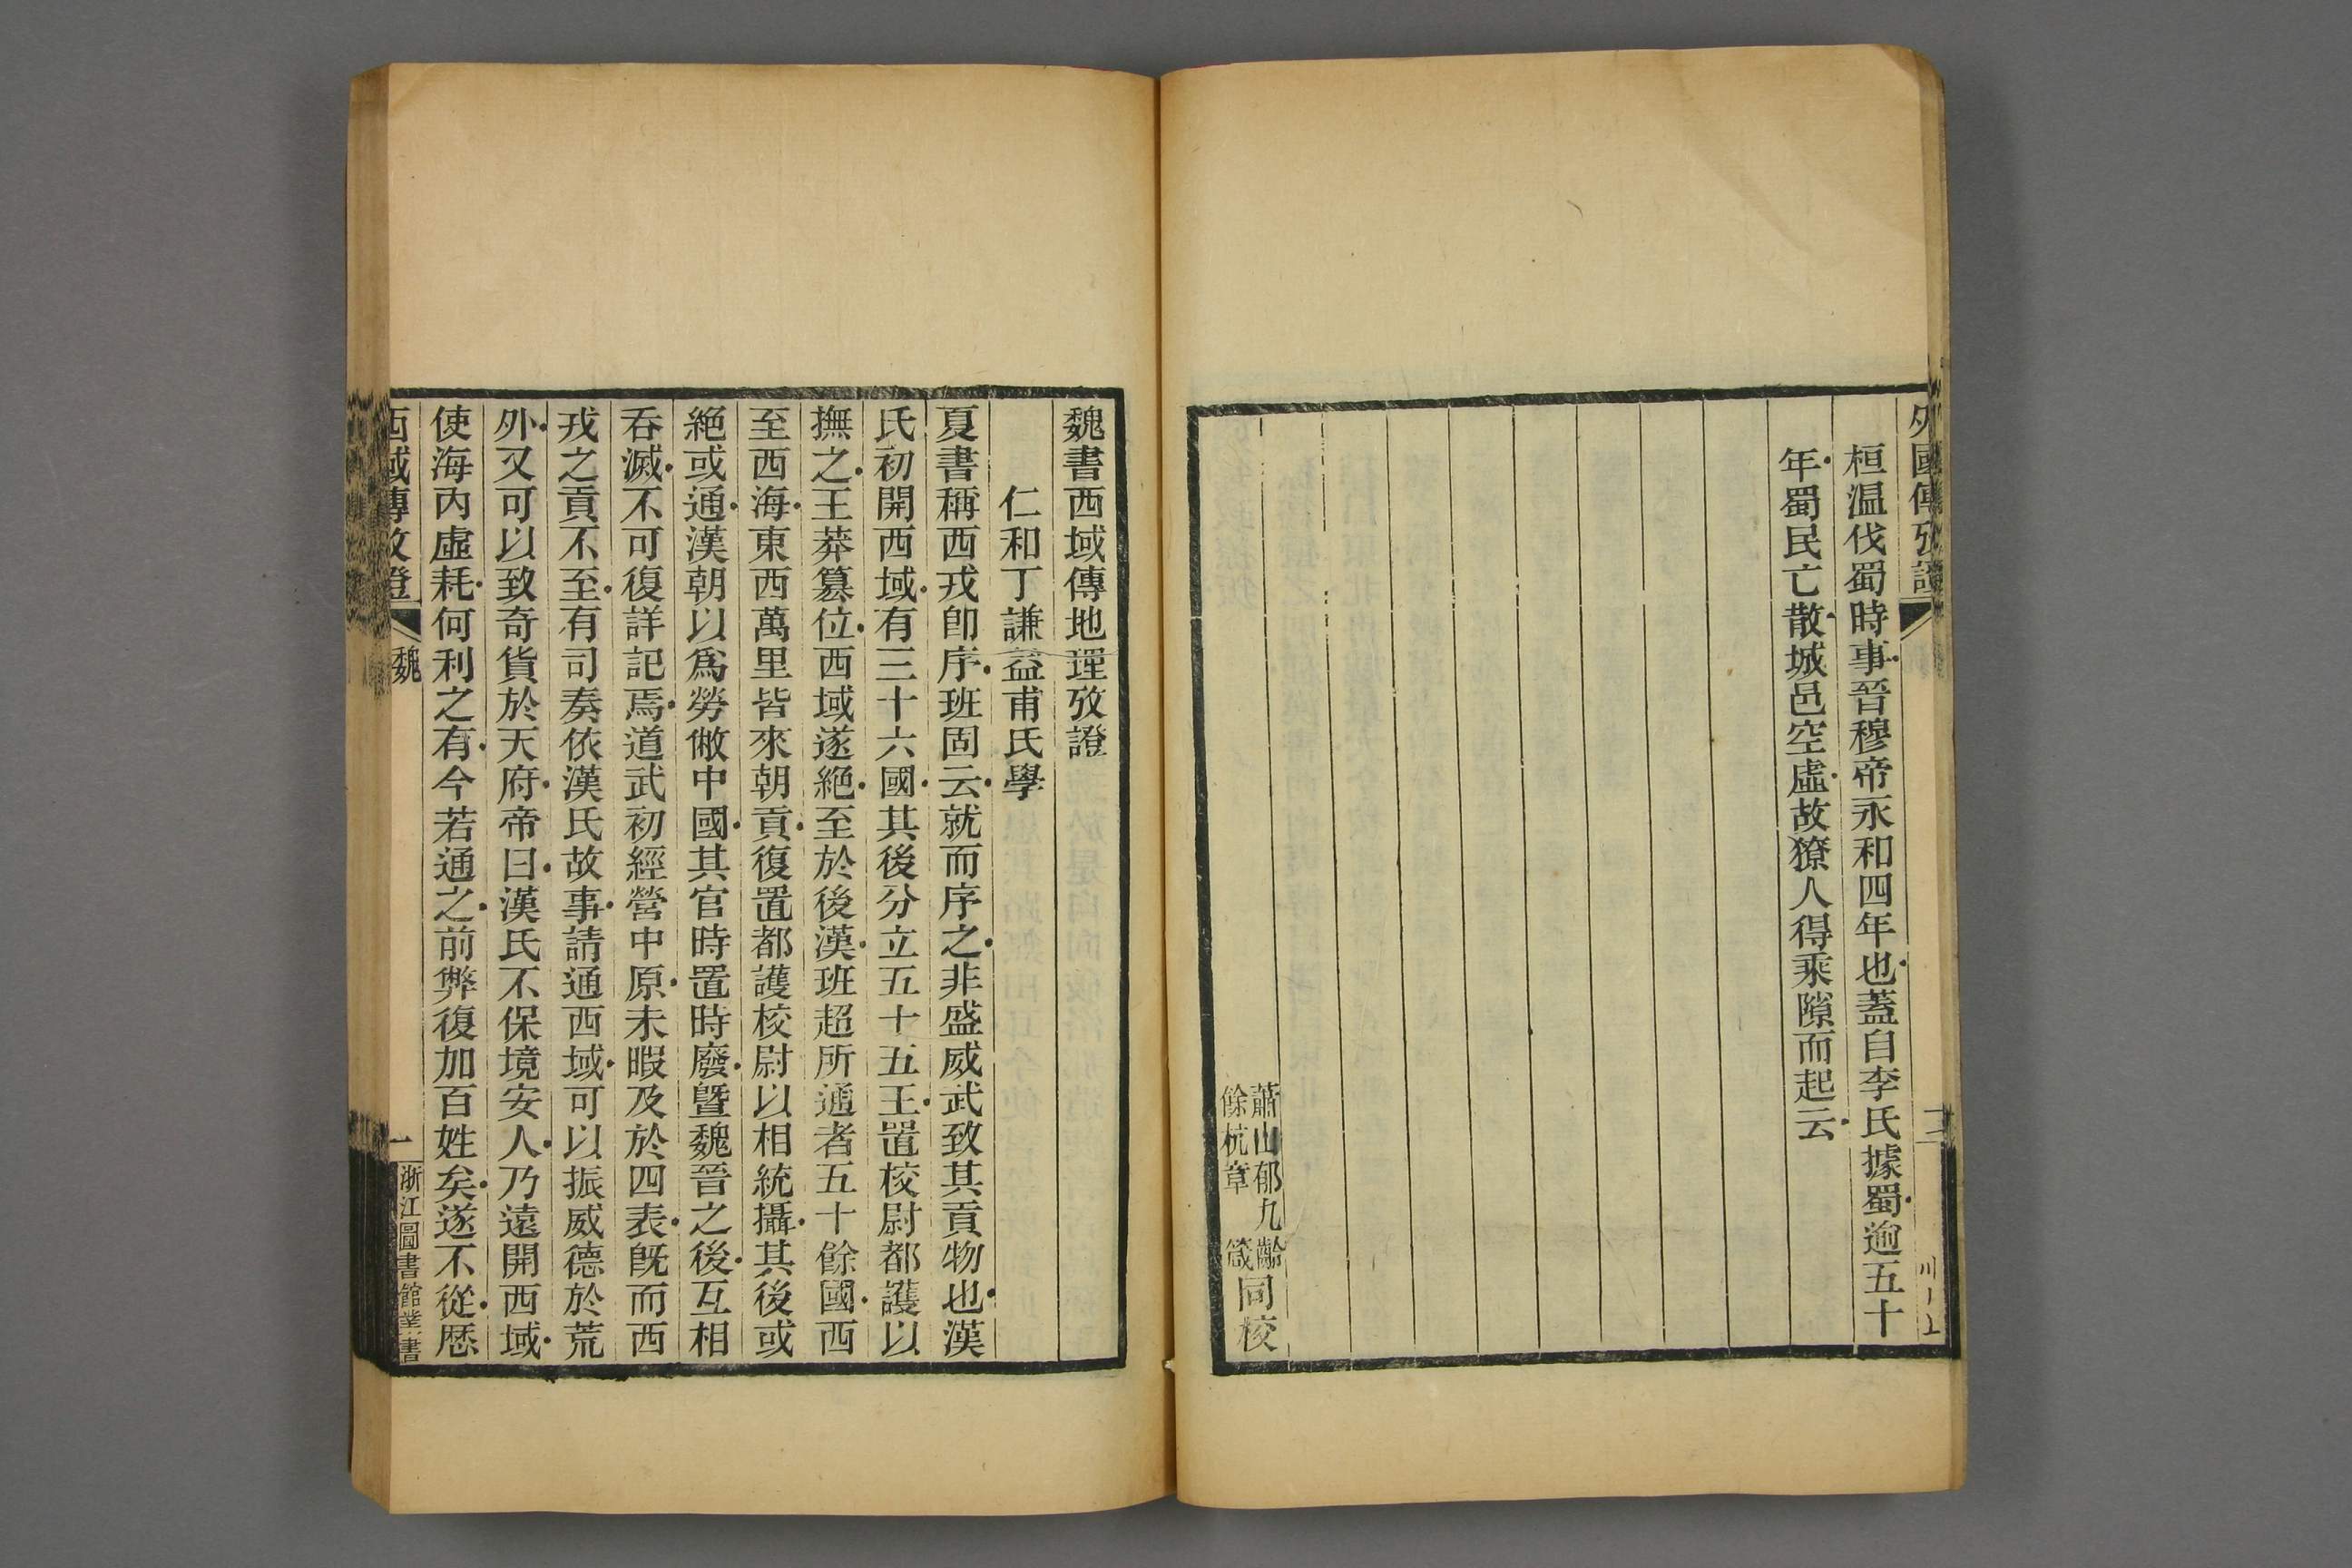 外國傳攷證
桓温伐蜀時事晉穆帝永和四年也蓋自李氏據蜀逾五十
年蜀民亡散城邑空虛故獠人得乘隙而起云
蕭山郁九齡
餘杭章箴
同校
魏書西域傳地理攷證
仁和丁謙益甫氏學
夏書稱西戎卽序班固云就而序之非盛威武致其貢物也漢
氏初開西域有三十六國其後分立五十五王置校尉都護以
撫之王莽篡位西域遂絕至於後漢班超所通者五十餘國西
至西海東西萬里皆來朝貢復置都護校尉以相統攝其後或
絕或通漢朝以爲勞敝中國其官時置時廢曁魏晉之後互相
吞滅不可復詳記焉道武初經營中原未暇及於四表旣而西
戎之貢不至有司奏依漢氏故事請通西域可以振威德於荒
外又可以致奇貨於天府帝曰漢氏不保境安人乃遠開西域
使海內虛耗何利之有今若通之前弊復加百姓矣遂不從歷
西域傳攷證 魏 一 浙江圖書館叢書